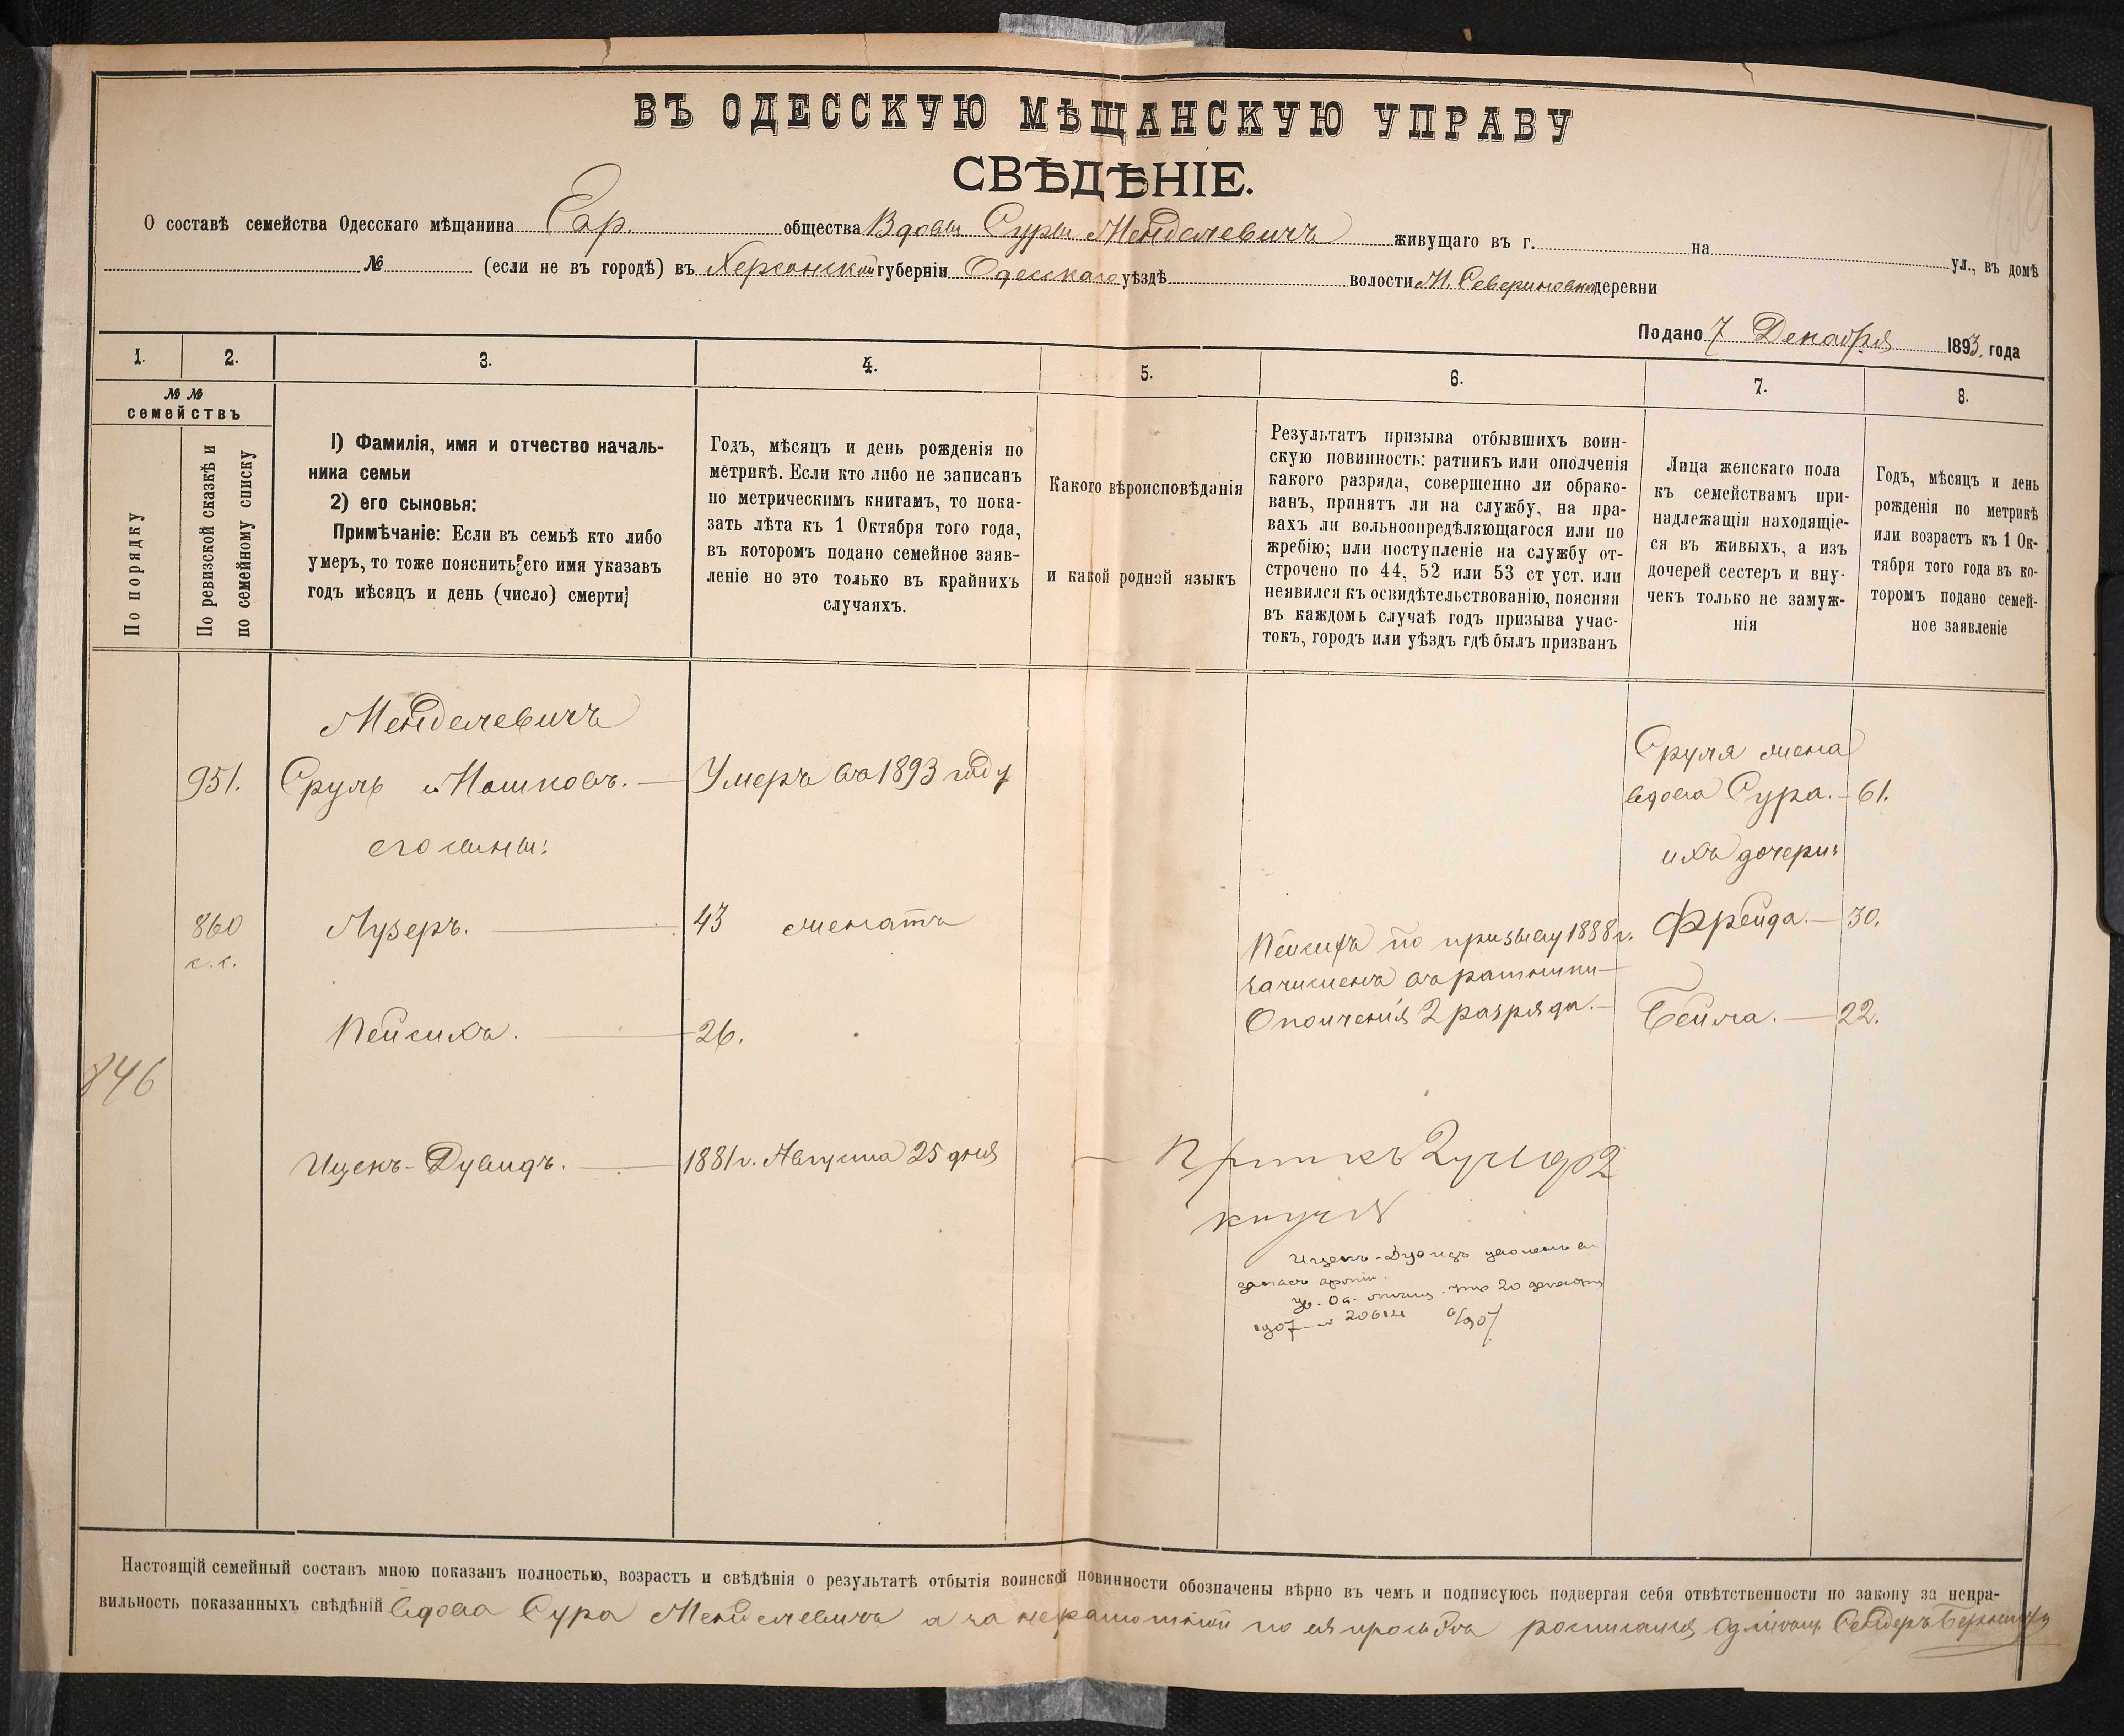 ВЪ ОДЕССКУЮ МѢЩАНСКУЮ УПРАВУ
СВѢДѢНІЕ.
О составѣ семейства Одесскаго мѣщанина Евр. общества Вдовы Суры Менделевичъ живущаго въ г. на
№ (если не въ городѣ) въ Херсонской губерніи Одесскаго уѣздѣ волости М. Севериновка деревни ул., въ домѣ
Подано 7 Декабря 1893 года
1. 2. 3. 4. 5. 6. 7. 8.
№ №
семействъ
По порядку
По ревизской сказкѣ и
по семейному списку
1) Фамилія, имя и отчество началь-
ника семьи
2) его сыновья:
Примѣчаніе: Если въ семьѣ кто либо
умеръ, то тоже пояснить его имя указавъ
годъ мѣсяцъ и день (число) смерти;
Годъ, мѣсяцъ и день рожденія по
метрикѣ. Если кто либо не записанъ
по метрическимъ книгамъ, то пока-
зать лѣта къ 1 Октября того года,
въ которомъ подано семейное заяв-
леніе но это только въ крайнихъ
случаяхъ.
Какого вѣроисповѣданія
и какой родной языкъ
Результатъ призыва отбывшихъ воин-
скую повинность: ратникъ или ополченія
какого разряда, совершенно ли обрако-
ванъ, принятъ ли на службу, на пра-
вахъ ли вольноопредѣляющагося или по
жребію; или поступленіе на службу от-
строчено по 44, 52 или 53 ст уст. или
неявился къ освидѣтельствованію, поясняя
въ каждомъ случаѣ годъ призыва учас-
токъ, городъ или уѣздъ гдѣ былъ призванъ
Лица женскаго пола
къ семействамъ при-
надлежащія находящіе-
ся въ живыхъ, а изъ
дочерей сестеръ и вну-
чекъ только не замуж-
нія
Годъ, мѣсяцъ и день
рожденія по метрикѣ
или возрастъ къ 1 Ок-
тября того года въ ко-
торомъ подано семей-
ное заявленіе
Менделевичъ
951. Сруль Мошковъ. — Умеръ въ 1893 году
Сруля жена
вдова Сура. — 61.
его сыны:
ихъ дочери:
860 Лузеръ. — 43 женатъ
с.с.
Фрейда. — 30.
Пейсихъ. — 26.
Пейсихъ по призыву 1888 г.
зачисленъ въ ратники
Ополченія 2 разряда. —
Бейла. — 22.
846
Ицекъ-Дувидъ. — 1881 г. Августа 25 дня
Ицекъ-Дувидъ уволенъ въ
запасъ арміи.
1907 20614
Настоящій семейный составъ мною показанъ полностью, возрастъ и свѣдѣнія о результатѣ отбытія воинской повинности обозначены вѣрно въ чемъ и подписуюсь подвергая себя отвѣтственности по закону за непра-
вильность показанныхъ свѣдѣній вдова Сура Менделевичъ а за неграмотной по ея просьбѣ росписался Од мѣщ Сендеръ